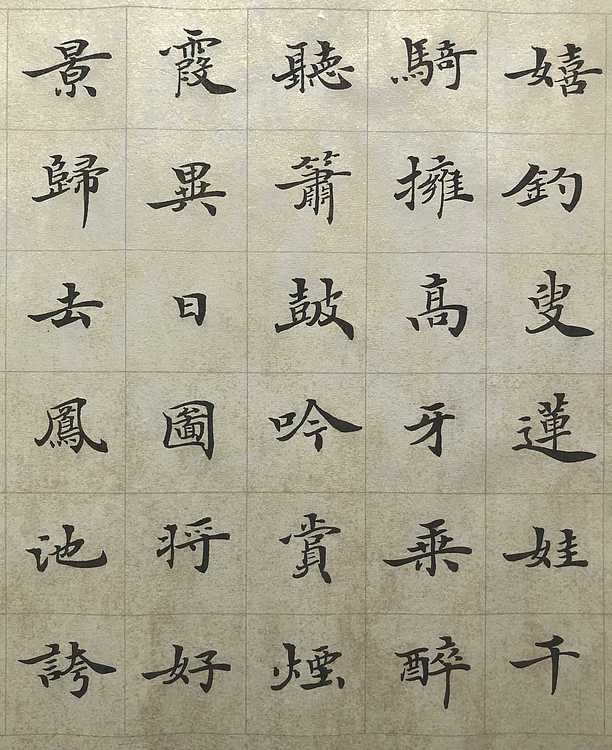 嬉釣叟蓮娃千
騎擁高牙乗醉
聽簫鼓吟賞煙
霞異日圖将好
景歸去鳳池誇